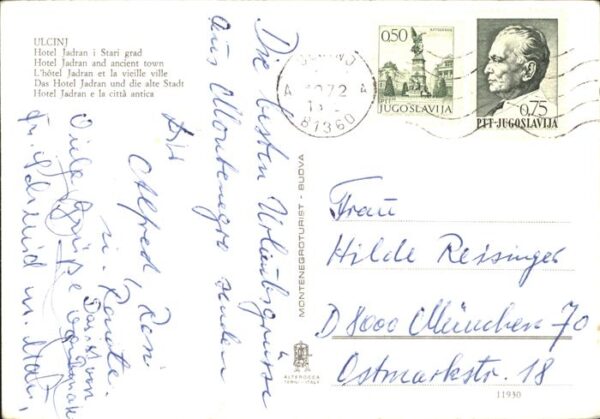 ULCINJ
Hotel Jadran i Stari grad
Hotel Jadran and ancient town
L'hôtel Jadran et la vieille ville
Das Hotel Jadran und die alte Stadt
Hotel Jadran e la città antica
0,50
PTT
JUGOSLAVIJA
0,75
PTT-JUGOSLAVIJA
A A
72
81360
Die besten Urlaubsgrüsse
aus Montenegro senden
Alfred, Resi
u. Renate.
Viele
MONTENEGROTURIST - BUDVA
ALTEROCCA
TERNI - ITALY
Frau
Hilde Reisinger
D 8000 München 70
Ostmarkstr. 18
11930